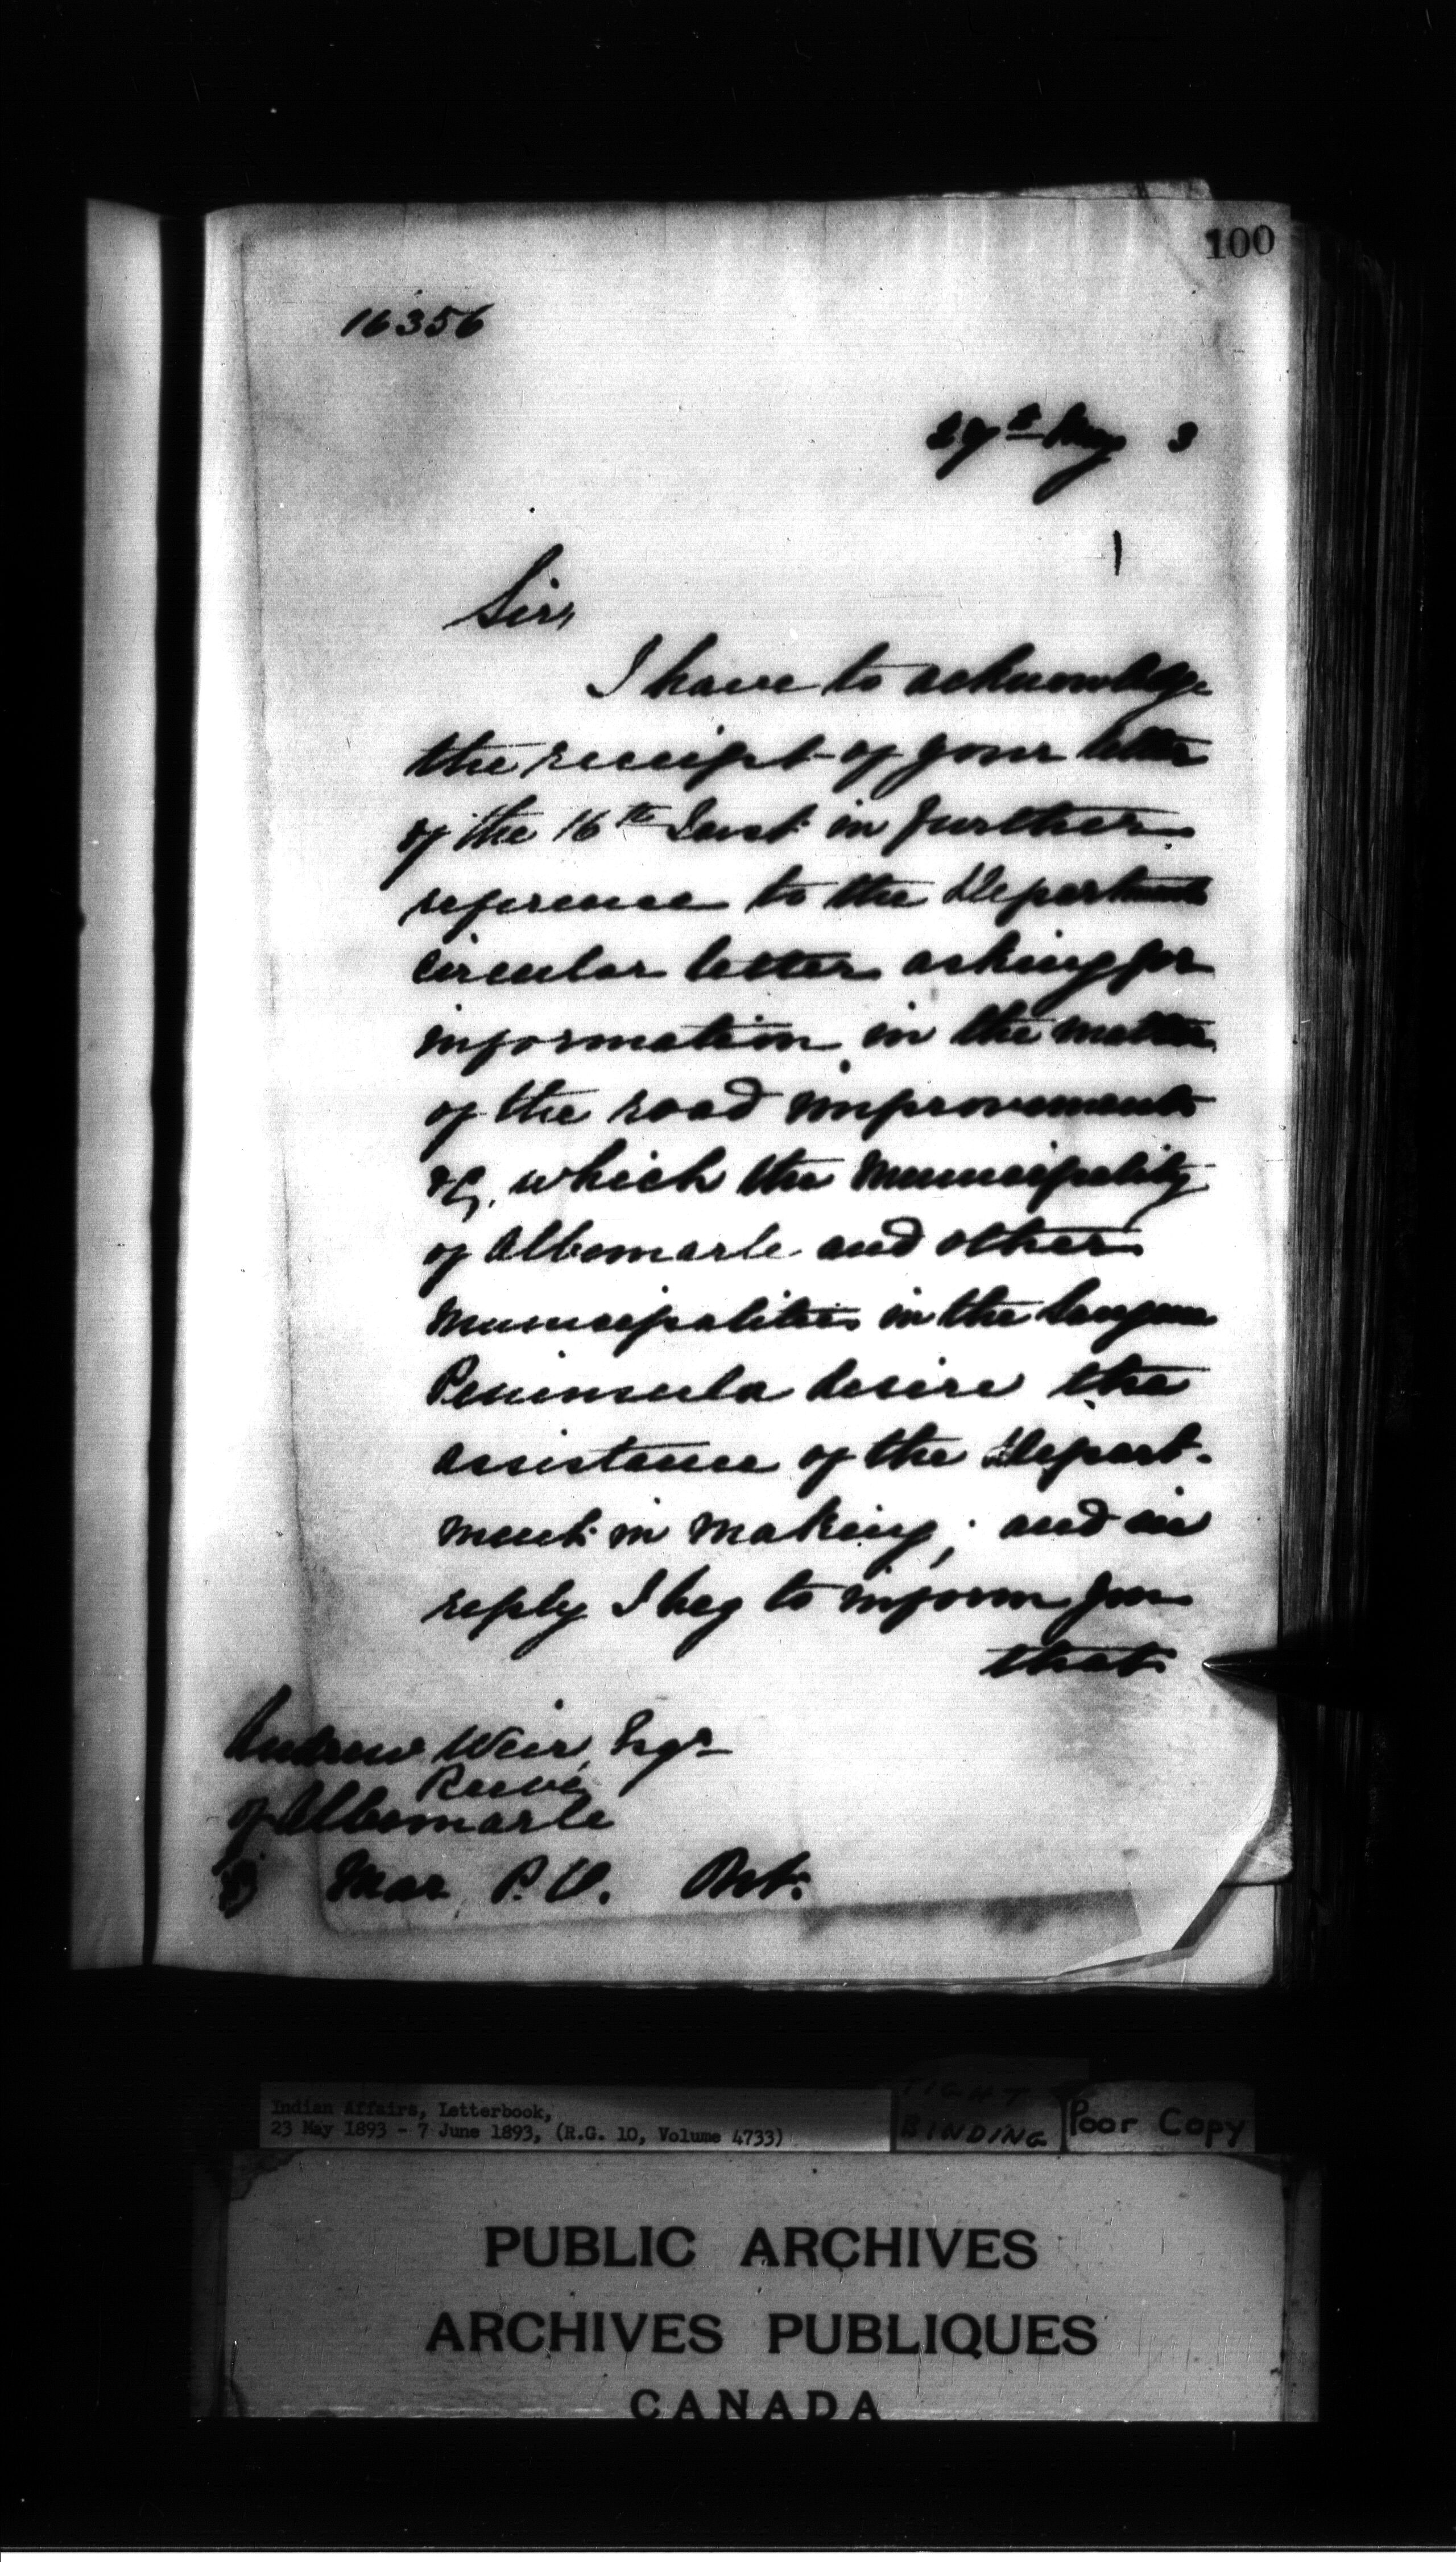 100
16356
27th May 3
Sir,
I have to acknowledge
the receipt of your letter
of the 16th Inst. in further
reference to the Departments
circular letter asking for
information in the matter
of the road improvements
&c, which the Municipality
of Albemarle and other
Municipalities in the Saugeen
Peninsula desire the
assistance of the Depart-
ment in making; and in
reply I beg to inform you
that
Andrew Weir, Esqr
Reeve
of Albemarle
Mar P.O. Ont.
Indian Affairs, Letterbook,
23 May 1893 - 7 June 1893, (R.G. 10, Volume 4733)
TIGHT
BINDING
Poor Copy
PUBLIC ARCHIVES
ARCHIVES PUBLIQUES
CANADA